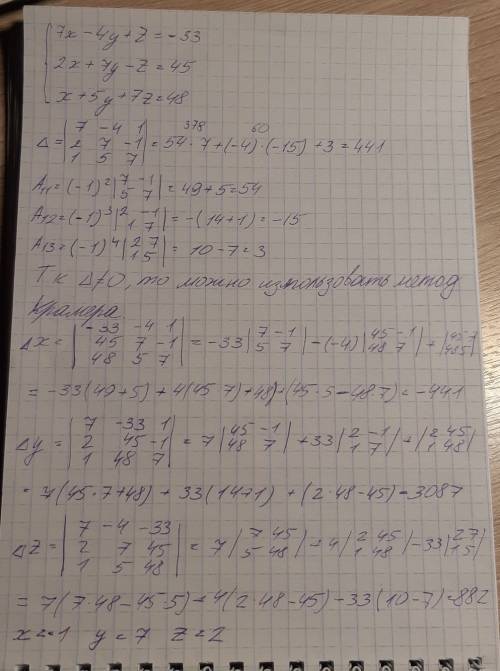 7x-4y+z=-33
2x+7y-z=45
x+5y+7z=48
378 60
Δ= |7 -4 1; 2 7 -1; 1 5 7| = 54·7+(-4)·(-15)+3=441
A11=(-1)²|7 -1; 5 7|=49+5=54
A12=(-1)³|2 -1; 1 7|=-(14+1)=-15
A13=(-1)⁴|2 7; 1 5|= 10-7=3
Т.к Δ≠0, то можно использовать метод
Крамера
Δx= |-33 -4 1; 45 7 -1; 48 5 7| = -33|7 -1; 5 7|-(-4)|45 -1; 48 7|+|45 7; 48 5|
= -33(49+5)+4(45·7)+48)+(45·5-48·7)=-441
Δy= |7 -33 1; 2 45 -1; 1 48 7| = 7|45 -1; 48 7|+33|2 -1; 1 7|+|2 45; 1 48|
= 7(45·7+48)+33(14+1)+(2·48-45)=3087
Δz= |7 -4 -33; 2 7 45; 1 5 48| = 7|7 45; 5 48|+4|2 45; 1 48|-33|2 7; 1 5|
= 7(7·48-45·5)+4(2·48-45)-33(10-7)=882
x=-1 y=7 z=2